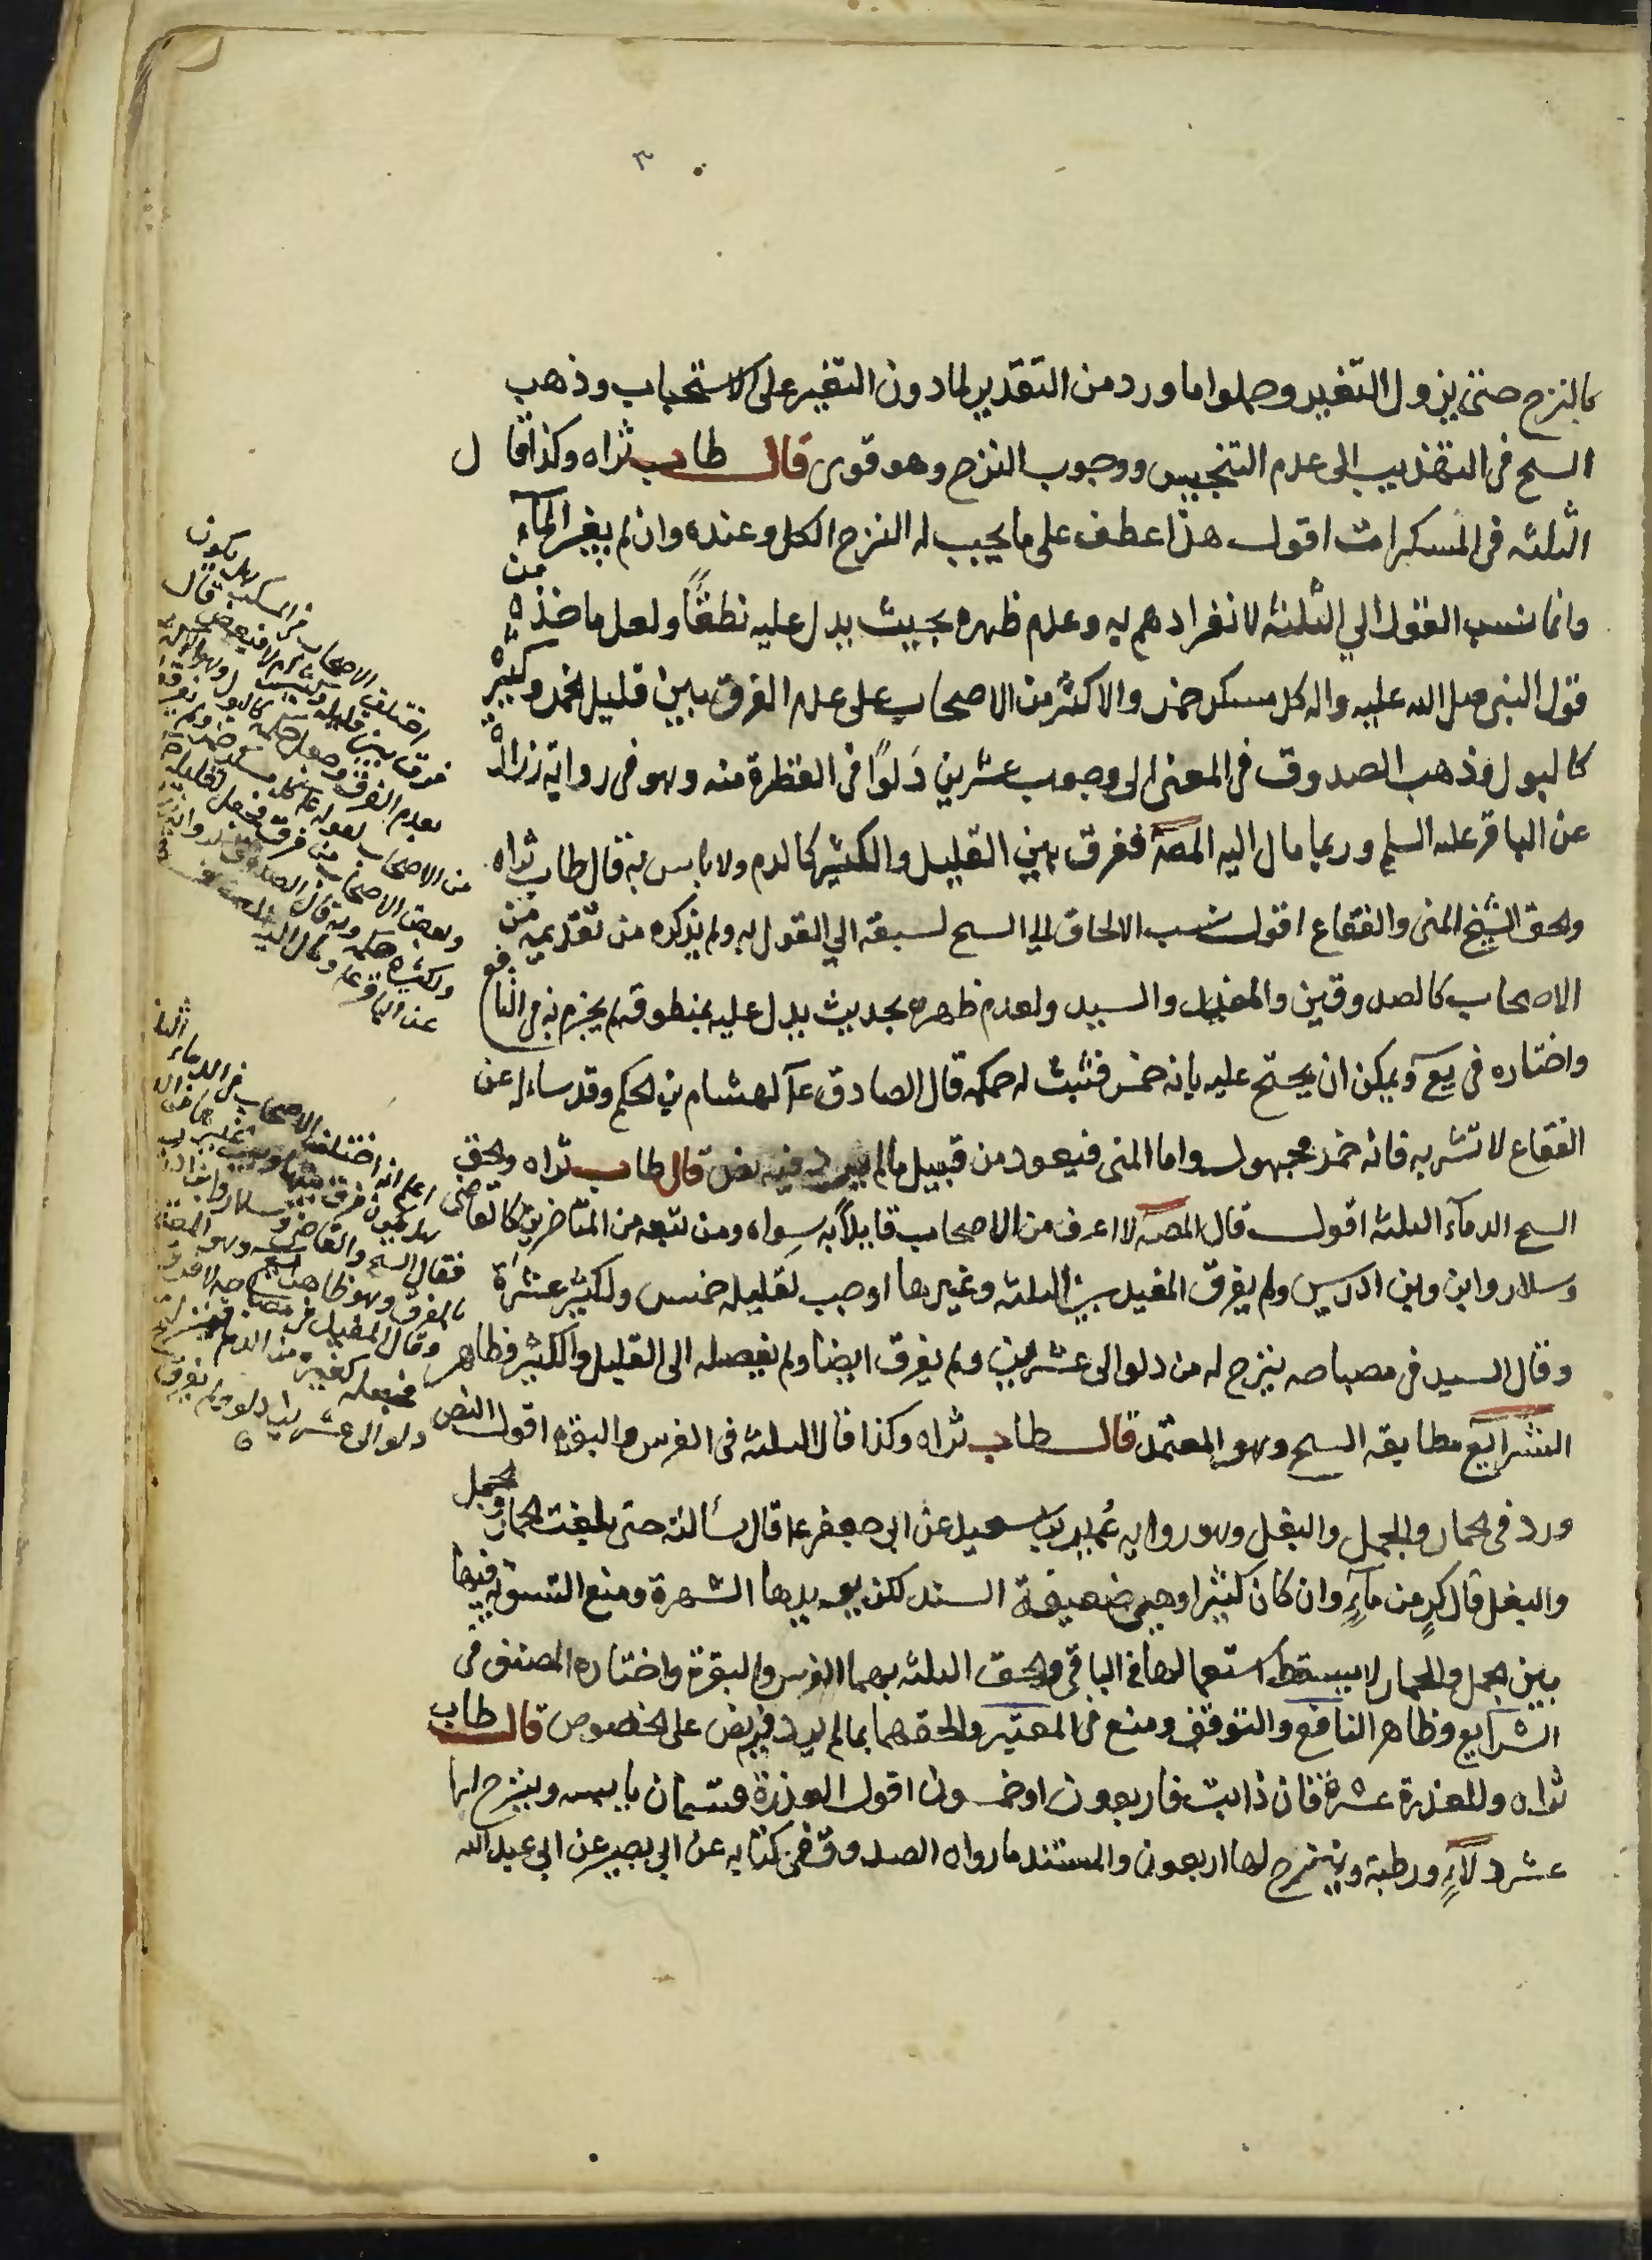 ٣
بالنزح حتى يزول التغير وحملوا ما ورد من التقدير لما دون التغير على الاستحباب وذهب
السح فى التهذيب الى عدم التنجيس ووجوب النزح وهو قوى قال طاب ثراه وكذا قال
الثلثه فى المسكرات اقول هذا عطف على ما يجب له النزح الكل وعنده وان لم يغير الماء
وانما نسب القول الي الثلثه لانفرادهم به وعدم ظهره بحيث يدل عليه نطقاً ولعل ماخذه من
قول النبى صلى الله عليه واله كل مسكر خمر والاكثر من الاصحاب على عدم الفرق بين قليل الخمر وكثيره
كالبول وذهب الصدوق فى المعنى الى وجوب عشرين دَلوًا فى القطرة منه وهو فى رواية زراره
عن الباقر عليه السلم وربما مال اليه المصه ففرق بين القليل والكثير كالدم ولا باس به قال طاب ثراه
والحق الشيخ المنى والفقاع اقول نسب الالحاق الي السح لسبقه الي القول به ولم يذكره من تقديمه من
الاصحاب كالصدوقين والمفيد والسيد ولعدم ظهره بحديث يدل عليه بمنطوقه لم يجزم به فى النافع
واختاره فى يع ويمكن ان يحتج عليه بانه خمر فثبت له حكمه قال الصادق ع لهشام بن الحكم وقد ساءله عن
الفقاع لا تشربه فانه خمر مجهول واما المنى فيعود من قبيل ما لم يرد فيه نص قال طاب ثراه والحق
السح الدماء الثلثه اقول قال المصه لا اعرف من الاصحاب قايلاً به سواه ومن تبعه من المتاخرين كالقاضى
وسلار وابن وابن ادريس ولم يفرق المفيد بين الثلثه وغيرها اوجب لقليله خمس ولكثير عشرة
وقال السيد فى مصباحه ينزح له من دلو الى عشرين ولم يفرق ايضا ولم يفصله الى القليل والكثير وظاهر
الشرايع مطابقه السح وهو المعتمد قال طاب ثراه وكذا قال الثلثه فى الفرس والبقره اقول النص
ورد فى الحمار والجمل والبغل وهو رواية عُمر بن سعيد عن ابى جعفر ع قال سألته حتى بلغت الحمار والجمل
والبغل قال كرٍ من ماءٍ وان كان كثيرا وهى ضعيفة السند لكن يويدها الشهرة ومنع التسوية فيها
بين الجمل والحمار لا يسقط استعمالها فى الباقى والحق الثلثه بهما الفرس والبقرة واختاره المصنف فى
الشرايع وظاهر النافع والتوقف ومنع فى المعتبر والحقهما بما لم يرد فيه نص على الخصوص قال طاب
ثراه وللعذرة عشرة فان ذابت فاربعون او خمسون اقول العذرة قسمان يابسه وينزح لها
عشر دلآءٍ ورطبة وينزح لها اربعون والمستند ما رواه الصدوق فى كتابه عن ابى بصير عن ابى عبد الله
اختلف الاصحاب فى المسكر هل يكون
فرق بين قليله وكثيره ام لا فبعض قال
بعدم الفرق وجعل حكمه كالبول وهو
من الاصحاب لقوله ع كل مسكر خمر ولم يفرق
وبعض الاصحاب من فرق فجعل لقليله
ولكثيره حكمه وبه قال الصدوق
عن الباقر ع ومال اليه المصنف
اعلم انه اختلف الاصحاب فى الدماء الثلثه
هل يكون فرق بينها وبين غيرها
فقال السح والقاضى وسلار وابن ادريس
بالفرق وهو ظاهر
وقال المفيد
فجعله كغيره من الدم
دلو الى عشرين دلو ولم يفرق